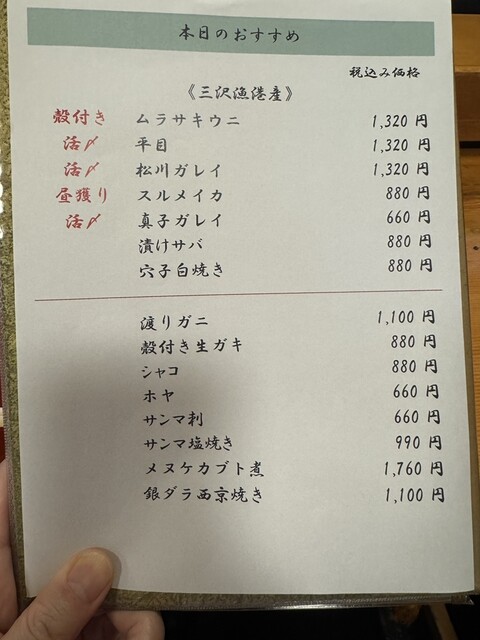 本日のおすすめ
税込み価格
《三沢漁港産》
殻付き ムラサキウニ 1,320 円
活〆 平目 1,320 円
活〆 松川ガレイ 1,320 円
昼獲り スルメイカ 880 円
活〆 真子ガレイ 660 円
漬けサバ 880 円
穴子白焼き 880 円
渡りガニ 1,100 円
殻付き生ガキ 880 円
シャコ 880 円
ホヤ 660 円
サンマ刺 660 円
サンマ塩焼き 990 円
メヌケカブト煮 1,760 円
銀ダラ西京焼き 1,100 円